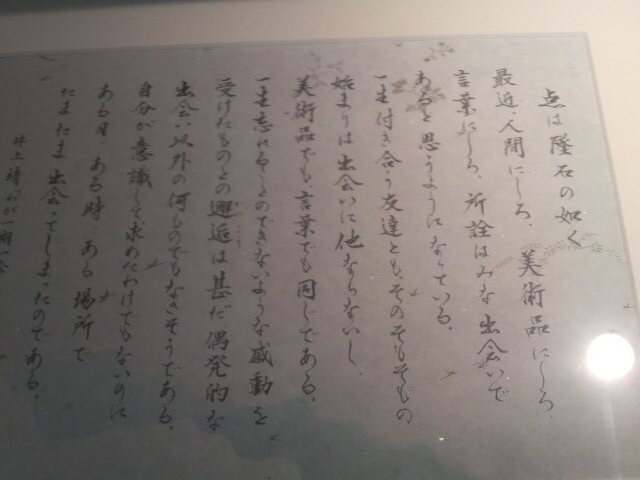 点は隕石の如く
最近、人間にしろ、美術品にしろ、
言葉にしろ、所詮はみな出会いで
あると思うようになっている。
一生付き合う友達とも、そのそもそもの
始まりは出会いに他ならないし、
美術品でも、言葉でも同じである。
一生忘れることのできないような感動を
受けたものとの邂逅は甚だ偶発的な
かいこう
出会い以外の何ものでもなさそうである。
自分が意識して求めたわけでもないのに
ある日、ある時、ある場所で
たまたま出会ってしまったのである。
井上靖 わが一期一会